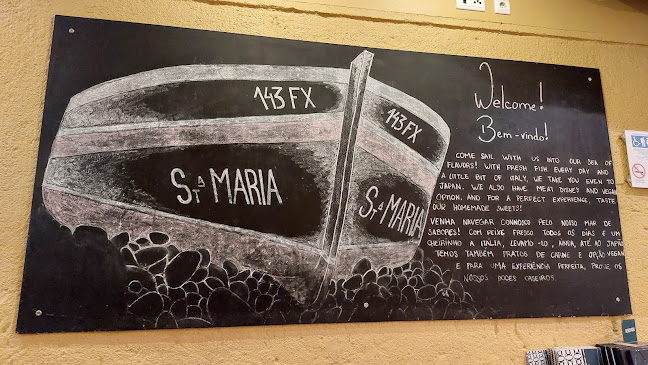 143 FX
143 FX
Sta MARIA
Sta MARIA
Welcome!
Bem-vindo!
COME SAIL WITH US INTO OUR SEA OF
FLAVORS! WITH FRESH FISH EVERY DAY AND
A LITTLE BIT OF ITALY, WE TAKE YOU EVEN TO
JAPAN. WE ALSO HAVE MEAT DISHES AND VEGAN
OPTION. AND FOR A PERFECT EXPERIENCE, TASTE
OUR HOMEMADE SWEETS!
VENHA NAVEGAR CONNOSCO PELO NOSSO MAR DE
SABORES! COM PEIXE FRESCO TODOS OS DIAS E UM
CHEIRINHO A ITÁLIA, LEVAMO-LO, AINDA, ATÉ AO JAPÃO.
TEMOS TAMBÉM PRATOS DE CARNE E OPÇÃO VEGAN
E PARA UMA EXPERIÊNCIA PERFEITA, PROVE OS
NOSSOS DOCES CASEIROS.